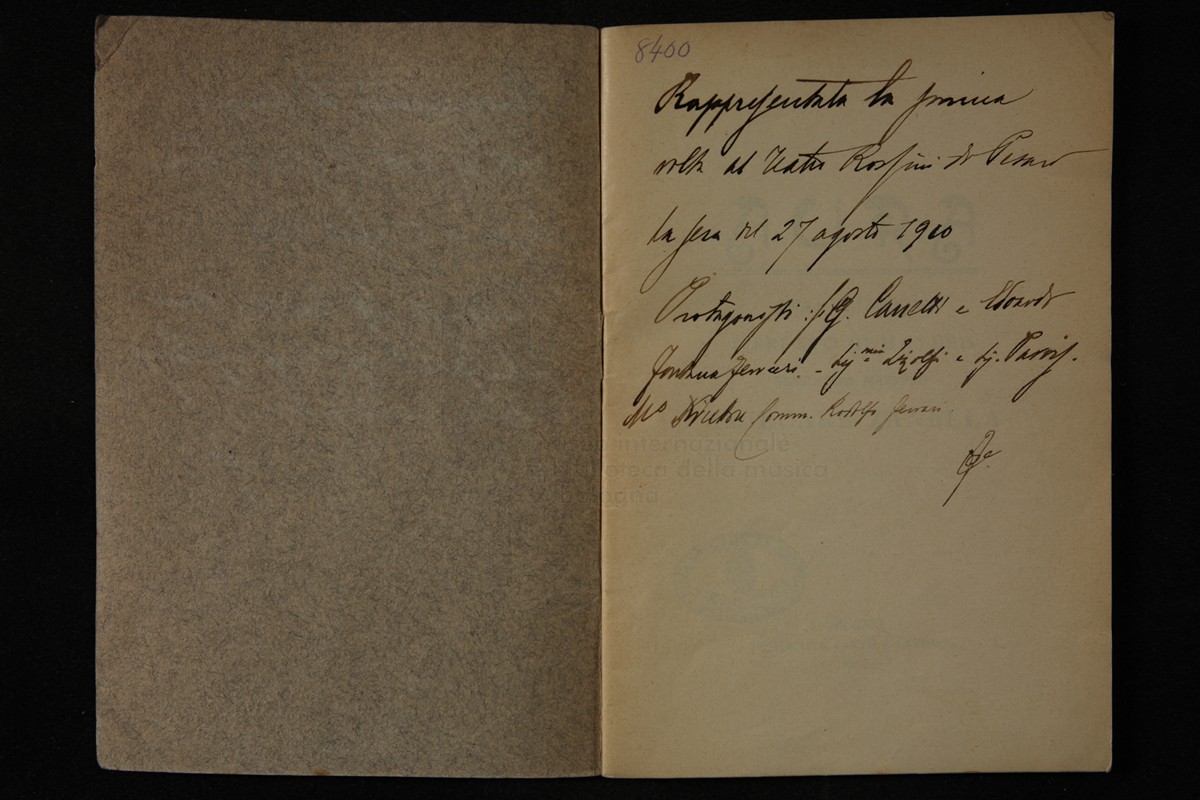 8400
Rappresentata la prima
volta al Teatro Rossini di Pesaro
la sera del 27 agosto 1910
Protagonisti: G. e Edoardo
Fontana Ferrari - e Sig. Parvis.
Mo Direttore Comm. Rodolfo Ferrari.
internazionale
biblioteca della musica
bologna